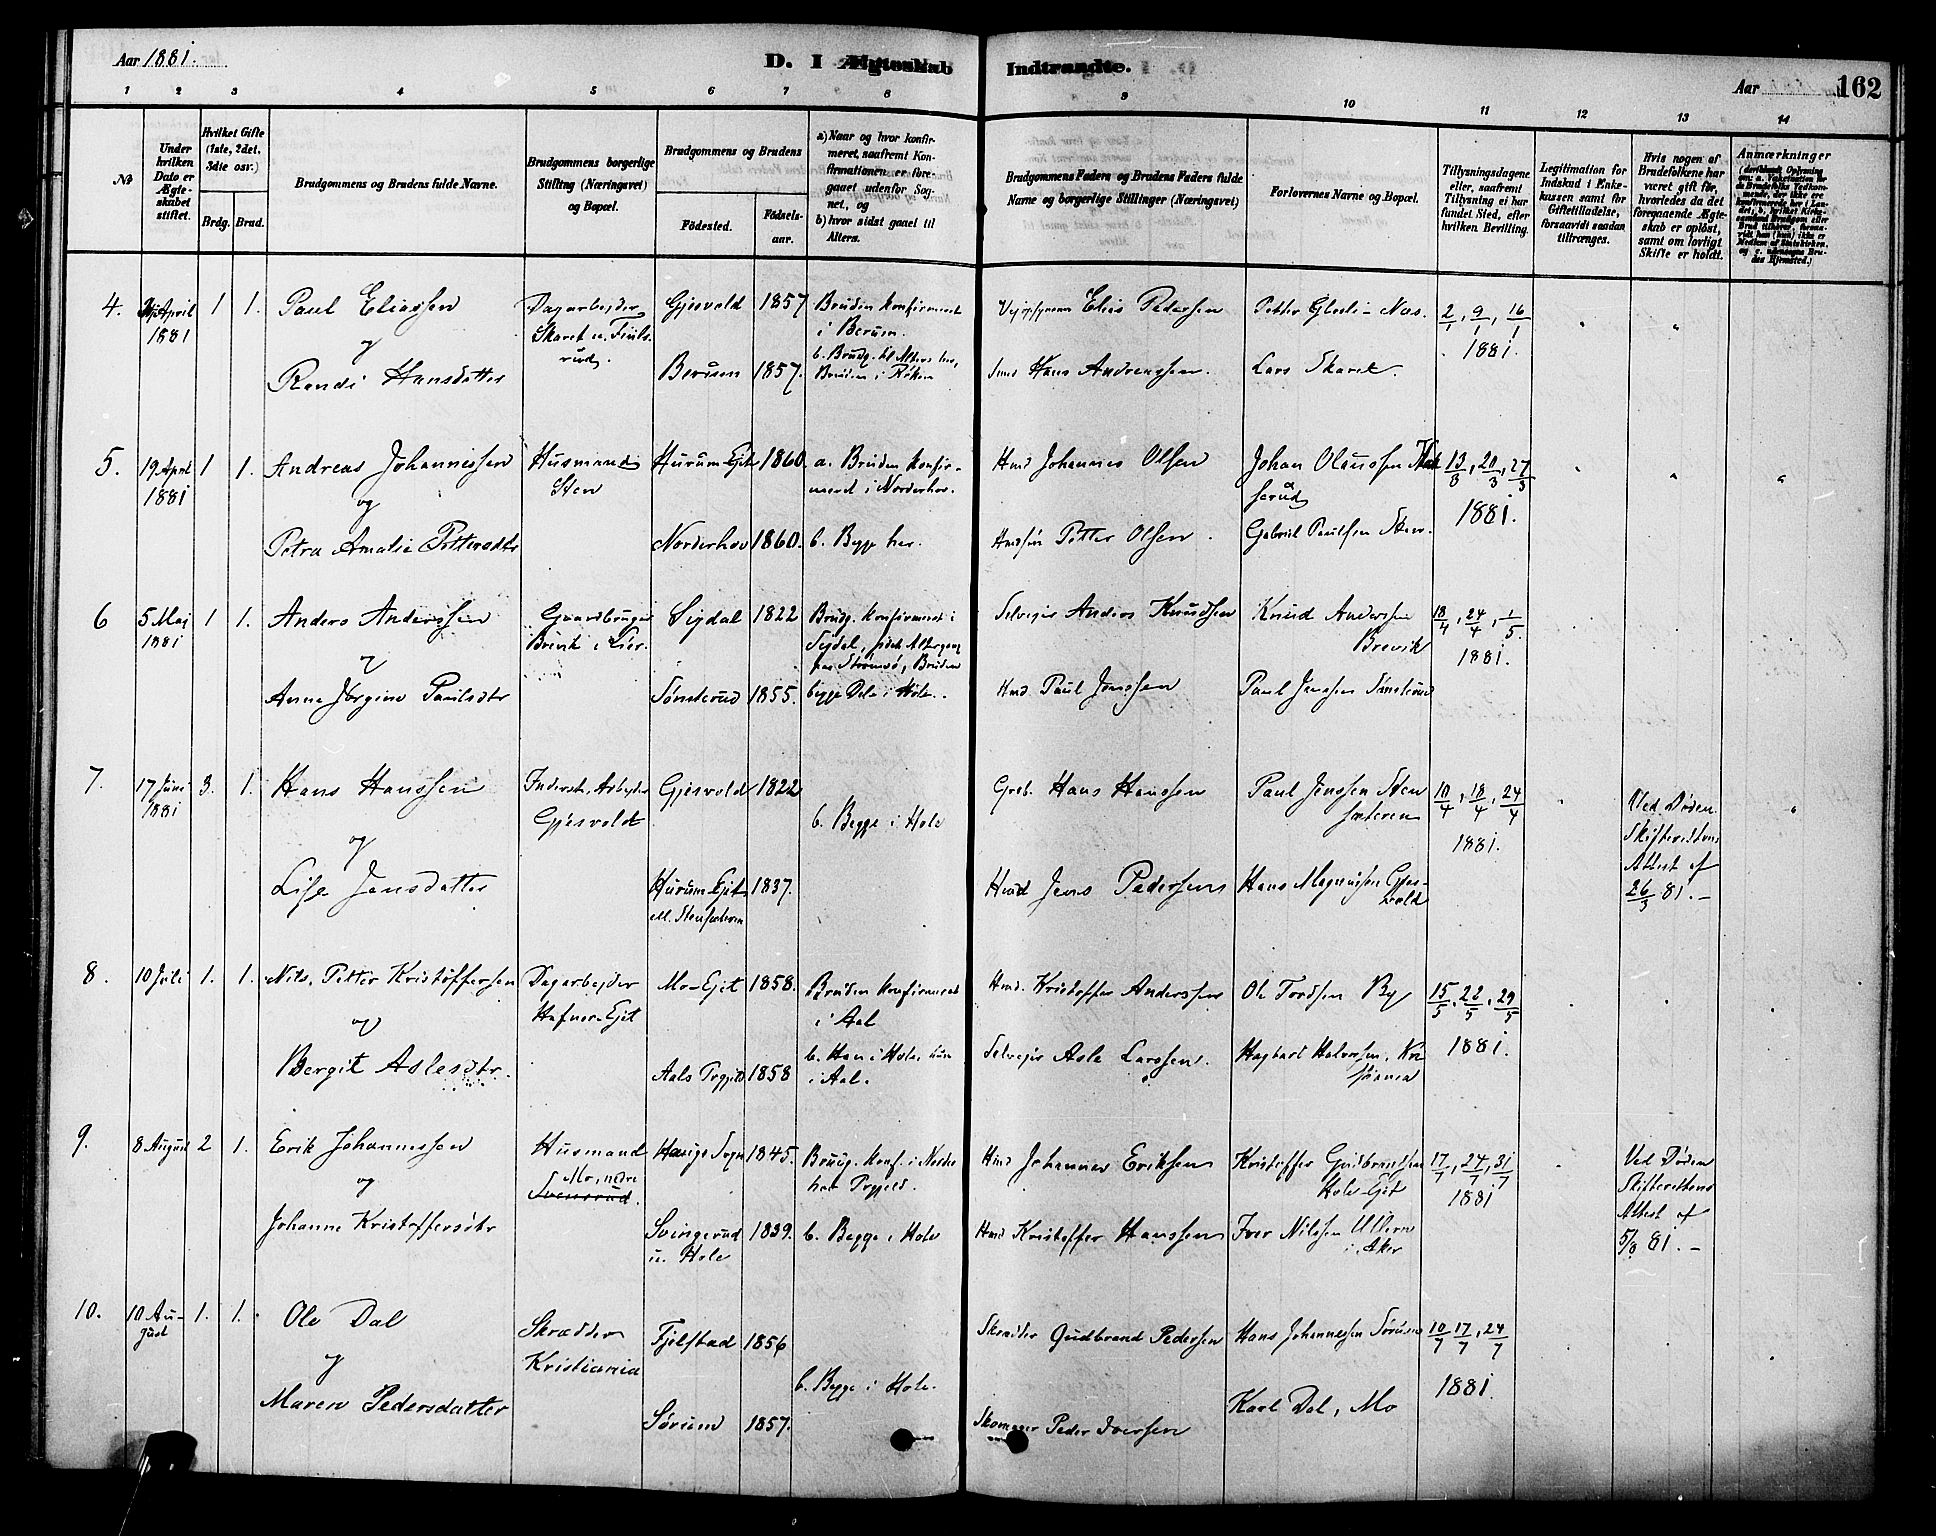 Aar 1881.
D. I Ægteskab Indtraadte.
Aar 162
1 2 3 4 5 6 7 8 9 10 11 12 13 14
No
Under hvilken Dato er Ægteskabet stiftet.
Hvilket Gifte (1ste, 2det, 3die osv.)
Brdg. Brud.
Brudgommens og Brudens fulde Navne.
Brudgommens borgerlige Stilling (Næringsvei) og Bopæl.
Brudgommens og Brudens
Fødested.
Fødselsaar.
a) Naar og hvor konfirmeret, saafremt Konfirmationen er foregaaet udenfor Sognet, og
b) hvor sidst gaaet til Alters.
Brudgommens Faders og Brudens Faders fulde Navne og borgerlige Stillinger (Næringsvei)
Forlovernes Navne og Bopæl.
Tillysningsdagene eller, saafremt Tillysning ei har fundet Sted, efter hvilken Bevilling.
Legitimation for Indskud i Enkekassen samt for Giftetilladelse, forsaavidt saadan tiltrænges.
Hvis nogen af Brudefolkene har været gift før, hvorledes da det foregaaende Ægteskab er opløst, samt om lovligt Skifte er holdt.
Anmærkninger
4. April 1881 1 1. Paul Eliassen
og
Randi Hansdatter
Dagarbejder
Skaret u.
Gjesvold 1857
Berum 1857.
Bruden konfirmeret
i Berum.
b. Brudg. til Alters her,
Bruden i Røken
Elias Pedersen
Hans Andreassen.
Petter Næs.
Lars Skaret.
2/1, 9/1, 16/1
1881.
5. 19 April 1881 1 1. Andreas Johannessen
og
Petra Amalie Pettersdtr
Husmand
Sten
Hurum-Ejet 1860
Norderhov 1860.
a. Bruden konfirmeret
i Norderhov.
b. Begge her.
Hmd Johannes Olsen
Petter Olsen.
Johan Olaussen
Gabriel Paulsen
13/3, 20/3, 27/3
1881.
6 5 Maj 1881 1 1. Anders Anderssen
og
Anne Jørgine Paulsdtr
Gaardbruger
Brevik i Lier.
Sigdal 1822
Sønsterud 1855.
Brudg. konfirmeret i
Sigdal, sidst Altergang
paa Strømsø, Bruden
begge Dele i Hole.
Selvejer Anders Knudsen
Hmd. Paul Jenssen
Knud Anderssen
Brevik
Paul Jenssen Sønsterud
18/4, 24/4, 1/5.
1881.
7. 17 Juni 1881 3. 1. Hans Hanssen
og
Lise Jensdatter
Inderst, Arbejder
Gjesvold
Gjesvold 1822
Hurum-Ejet 1837.
b. Begge i Hole
Hans Hanssen
Hmd Jens Pedersen
Paul Jenssen Stensæteren
Hans Magnussen Gjesvold
10/4, 18/4, 24/4
1881.
Ved Døden
Skifterettens
Attest af
26/3 81.
8. 10 Juli 1. 1. Nils Petter Kristoffersen
og
Bergit Aslesdtr.
Dagarbejder
Hafnor-Ejet
Mo-Ejet 1858.
Aals Prgjeld 1858
Bruden konfirmeret
i Aal
b. Han i Hole, hun
i Aal.
Hmd. Kristoffer Anderssen
Selvejer Asle Larssen.
Ole Tordsen By
Hagbart Halvorsen, Kristiania
15/5, 22/5, 29/5
1881.
9. 8 August 2 1. Erik Johannessen
og
Johanne Kristoffersdtr
Husmand
Mo, nedre
Svensrud.
Haugs Sogn 1845.
Svingerud
u. Hole 1839.
Brudg. konf. i Norderhov Prgjeld.
b. Begge i Hole
Hmd Johannes Eriksen
Hmd Kristoffer Hanssen
Kristoffer Gudbrandsen
Hole-Ejet
Iver Nilssen Ullern
i Aker
17/7, 24/7, 31/7
1881
Ved Døden
Skifterettens
Attest af
5/8 81.
10. 10 August 1. 1. Ole Dal
og
Maren Pedersdatter
Skrædder
Kristiania
Fjelstad 1856
Sørum 1857.
b. Begge i Hole.
Skrædder Gudbrand Pedersen
Skomager Peder Iversen
Hans Johannessen Sørum
Karl Dal, Mo
10/7 17/7, 24/7
1881.